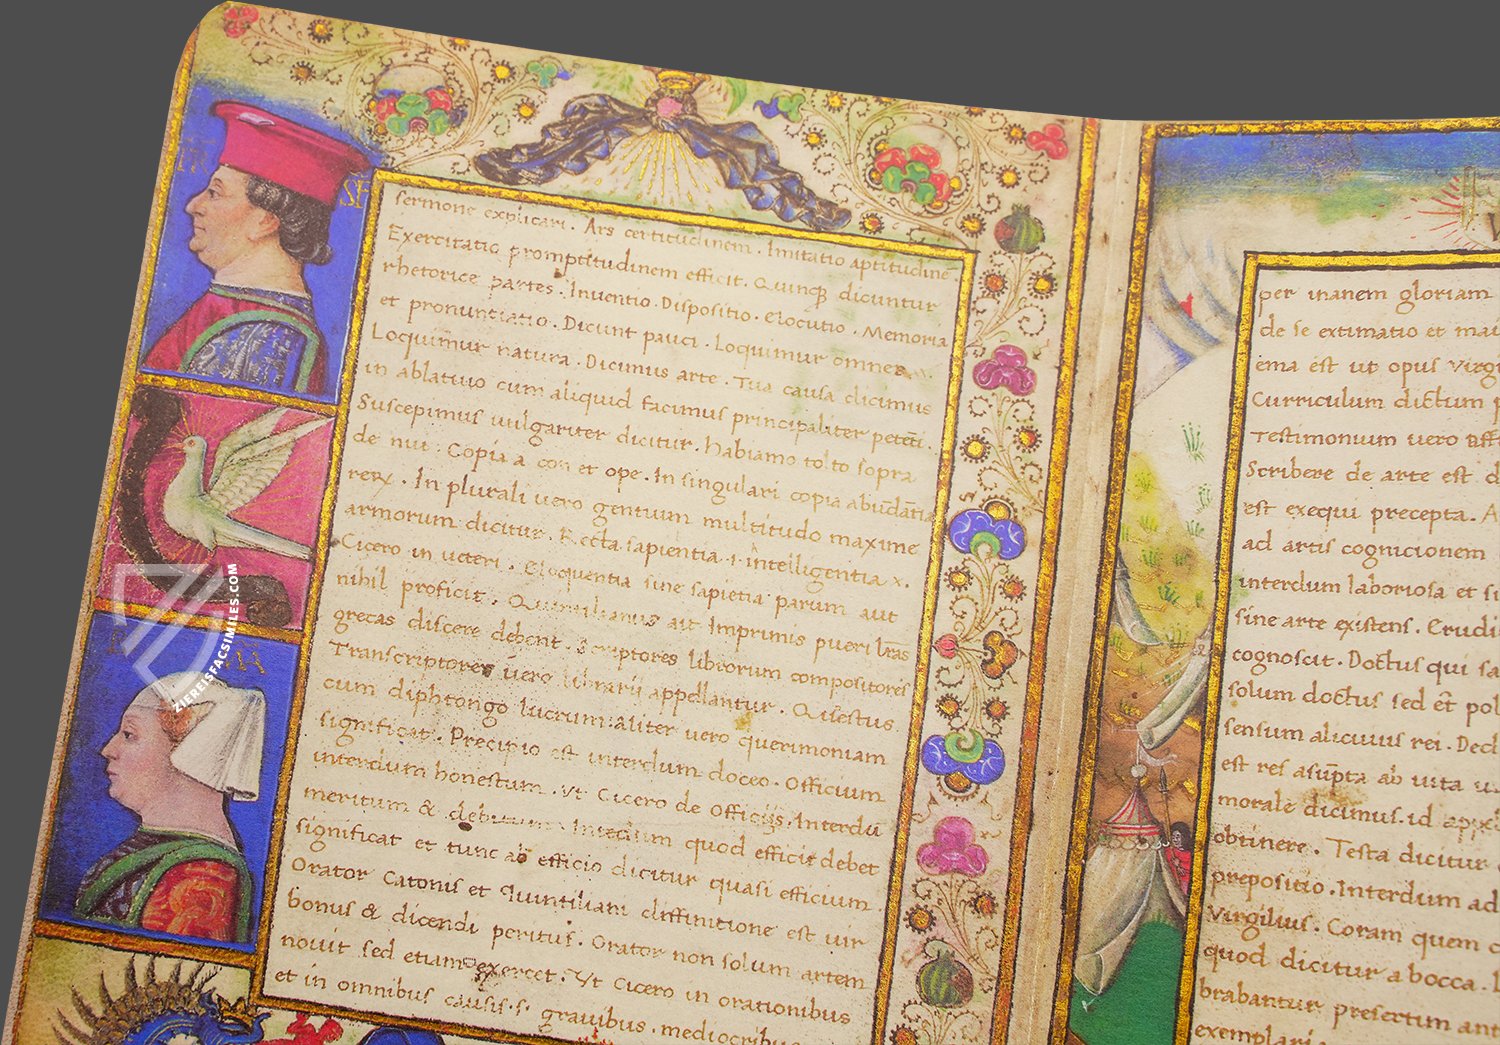 SF
sermone explicari. Ars certitudinem. Imitatio aptitudinē
Exercitatio promptitudinem efficit. Quinqȝ dicuntur
rhetorice partes. Inuentio. Dispositio. Elocutio. Memoria
et pronuntiatio. Dicunt pauci. Loquimur omnes
Loquimur natura. Dicimus arte. Tua causa dicimus
in ablatiuo cum aliquid facimus principaliter
Suscepimus uulgariter dicitur. habiamo tolto sopra
de nui. Copia a con et ope. In singulari copia abūdātia
rerꝝ. In plurali uero gentium multitudo maxime
armorum dicitur. Recta sapientia .i. intelligentia
Cicero in ueteri. Eloquentia sine sapietia parum aut
nihil proficit. Quintilianus ait Imprimis pueri l̄ras
grecas discere debent. Scriptores librorum compositores
Transcriptores uero librarii appellantur. Questus
cum diphtongo lucrum: aliter uero querimoniam
significat. Precipio est interdum doceo. Officium
interdum honestum. Vt Cicero de Officijs. Interdū
meritum & debitum. Interdum quod efficit debet
significat et tunc ab efficio dicitur quasi efficium.
Orator Catonis et Quintiliani diffinitione est uir
bonus & dicendi peritus. Orator non solum artem
nouit sed etiam exercet. Vt Cicero in orationibus
et in omnibus causis. s. grauibus. mediocribus
per inanem gloriam
de se extimatio et mai
ema est ut opus Virgi
Curriculum dictum p
Testimonium uero aff
Scribere de arte est d
est exequi precepta. A
ad artis cognicionem
interdum laboriosa et si
sine arte existens. Erudi
cognoscit. Doctus qui sa
solum doctus sed ēt pol
sensum alicuius rei. Decl
est res asūpta ab uita u
morale dicimus. id
obtinere. Testa dicitur
prepositio. Interdum ad
Virgilius. Coram quem c
quod dicitur a bocca. I
brabantur presertim ant
exemplari
ZIEREISFACSIMILES.COM